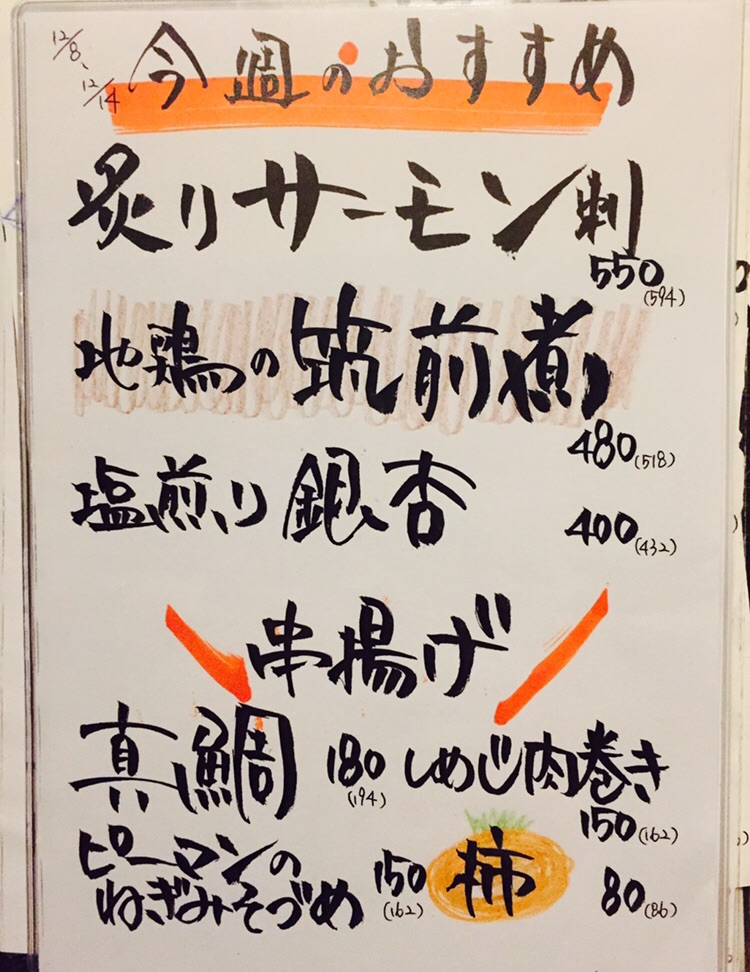 12/8、12/14
今週のおすすめ
炙りサーモン刺
550(594)
地鶏の筑前煮
480(518)
塩煎り銀杏
400(432)
串揚げ
真鯛 180(194)
しめじ肉巻き
150(162)
ピーマンの
ねぎみそづめ 150(162)
柿 80(86)